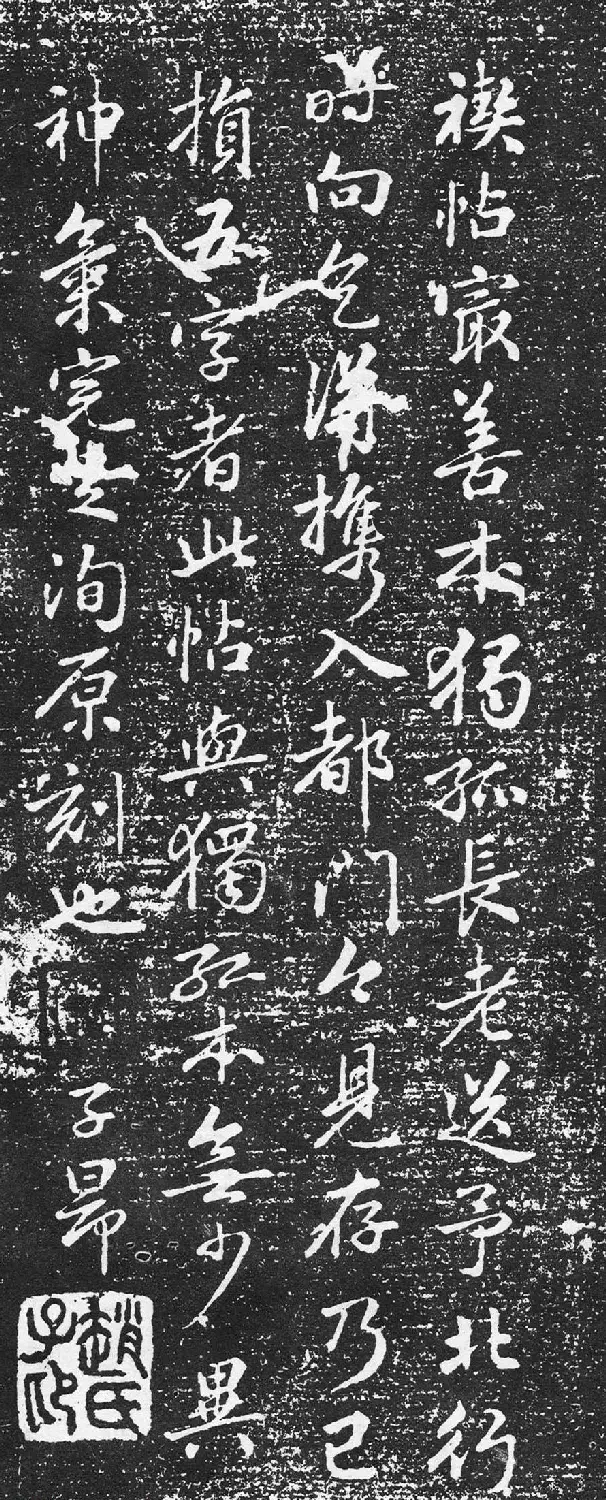 禊帖冣善本獨孤長老送予北行
時向乞得携入都門今見存乃已
損五字者此帖與獨孤本無少異
神氣完足洵原刻也 子昂
趙氏子昂